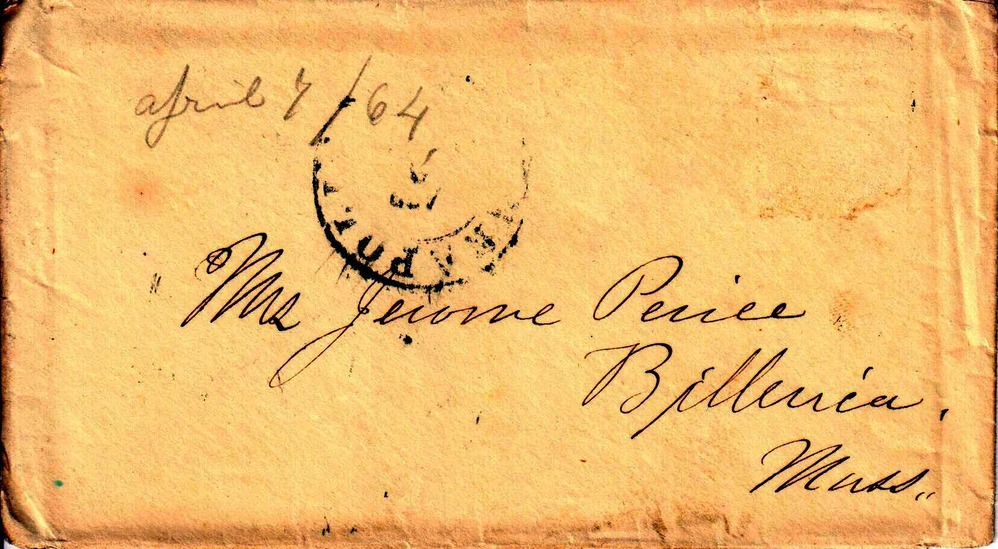 april 7/64
Mrs Jerome Peirce
Billerica,
Mass.